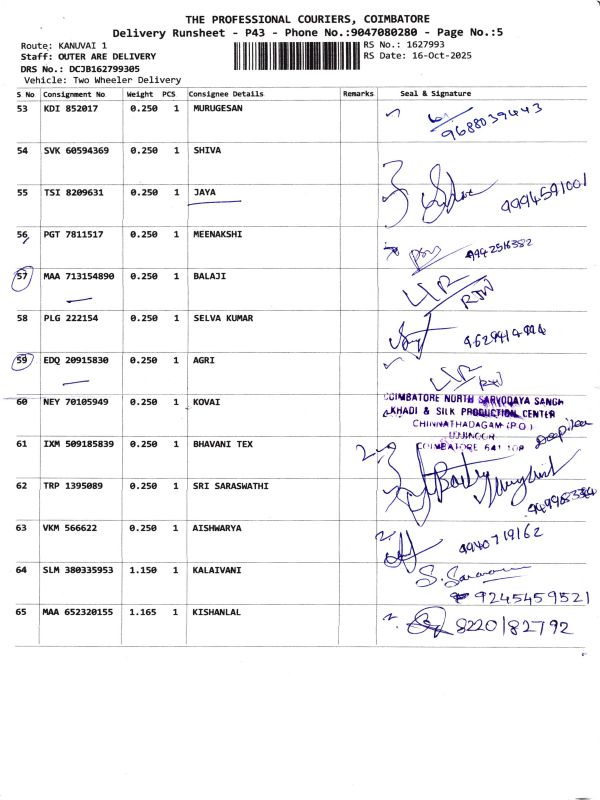 THE PROFESSIONAL COURIERS, COIMBATORE
Delivery Runsheet - P43 - Phone No.:9047080280 - Page No.:5
Route: KANUVAI 1 RS No.: 1627993
Staff: OUTER ARE DELIVERY RS Date: 16-Oct-2025
DRS No.: DCJB162799305
Vehicle: Two Wheeler Delivery
S No Consignment No Weight PCS Consignee Details Remarks Seal & Signature
53 KDI 852017 0.250 1 MURUGESAN
9688039443
54 SVK 60594369 0.250 1 SHIVA
55 TSI 8209631 0.250 1 JAYA
9994591001
56 PGT 7811517 0.250 1 MEENAKSHI
57 MAA 713154890 0.250 1 BALAJI
58 PLG 222154 0.250 1 SELVA KUMAR
59 EDQ 20915830 0.250 1 AGRI
60 NEY 70105949 0.250 1 KOVAI
COIMBATORE NORTH SARVODAYA SANGH
KHADI & SILK PRODUCTION CENTER
CHINNATHADAGAM (P.O)
COIMBATORE 641 108
61 IXM 509185839 0.250 1 BHAVANI TEX
62 TRP 1395089 0.250 1 SRI SARASWATHI
63 VKM 566622 0.250 1 AISHWARYA
9940719162
64 SLM 380335953 1.150 1 KALAIVANI
9245459521
65 MAA 652320155 1.165 1 KISHANLAL
8220182792